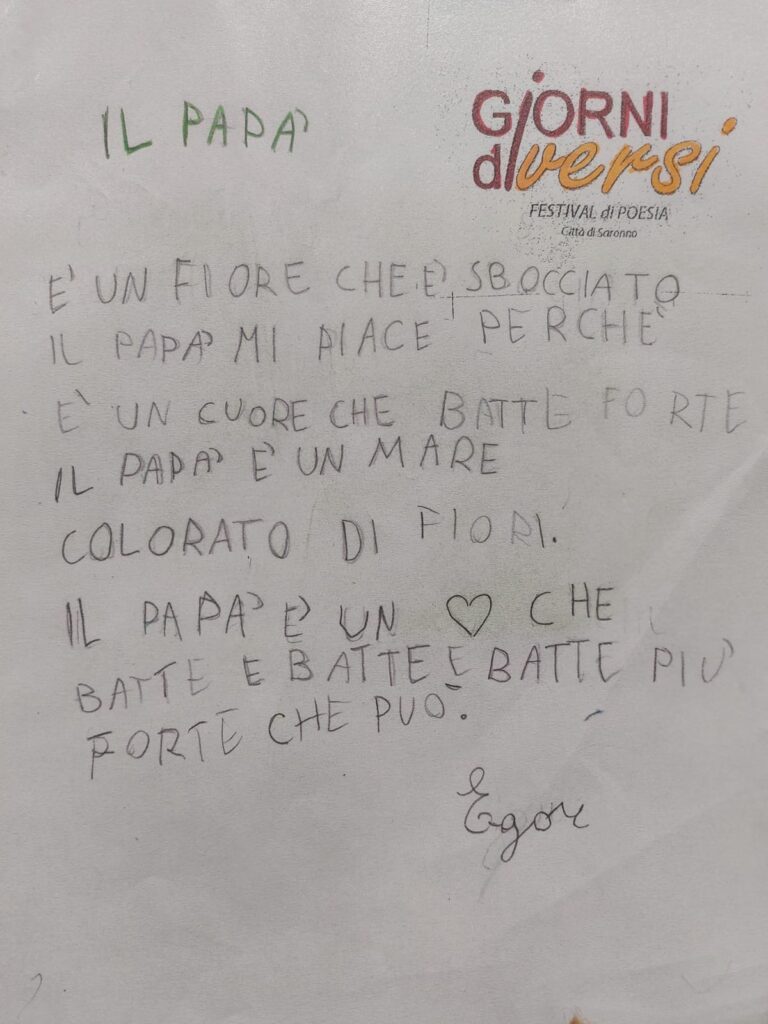 IL PAPA'
GiORNI
diversi
FESTIVAL di POESIA
Città di Saronno
E' UN FIORE CHE È SBOCCIATO
IL PAPA' MI PIACE PERCHE'
E' UN CUORE CHE BATTE FORTE
IL PAPA' E' UN MARE
COLORATO DI FIORI.
IL PAPA' E' UN ♡ CHE
BATTE E BATTE E BATTE PIU'
FORTE CHE PUO'.
Egor